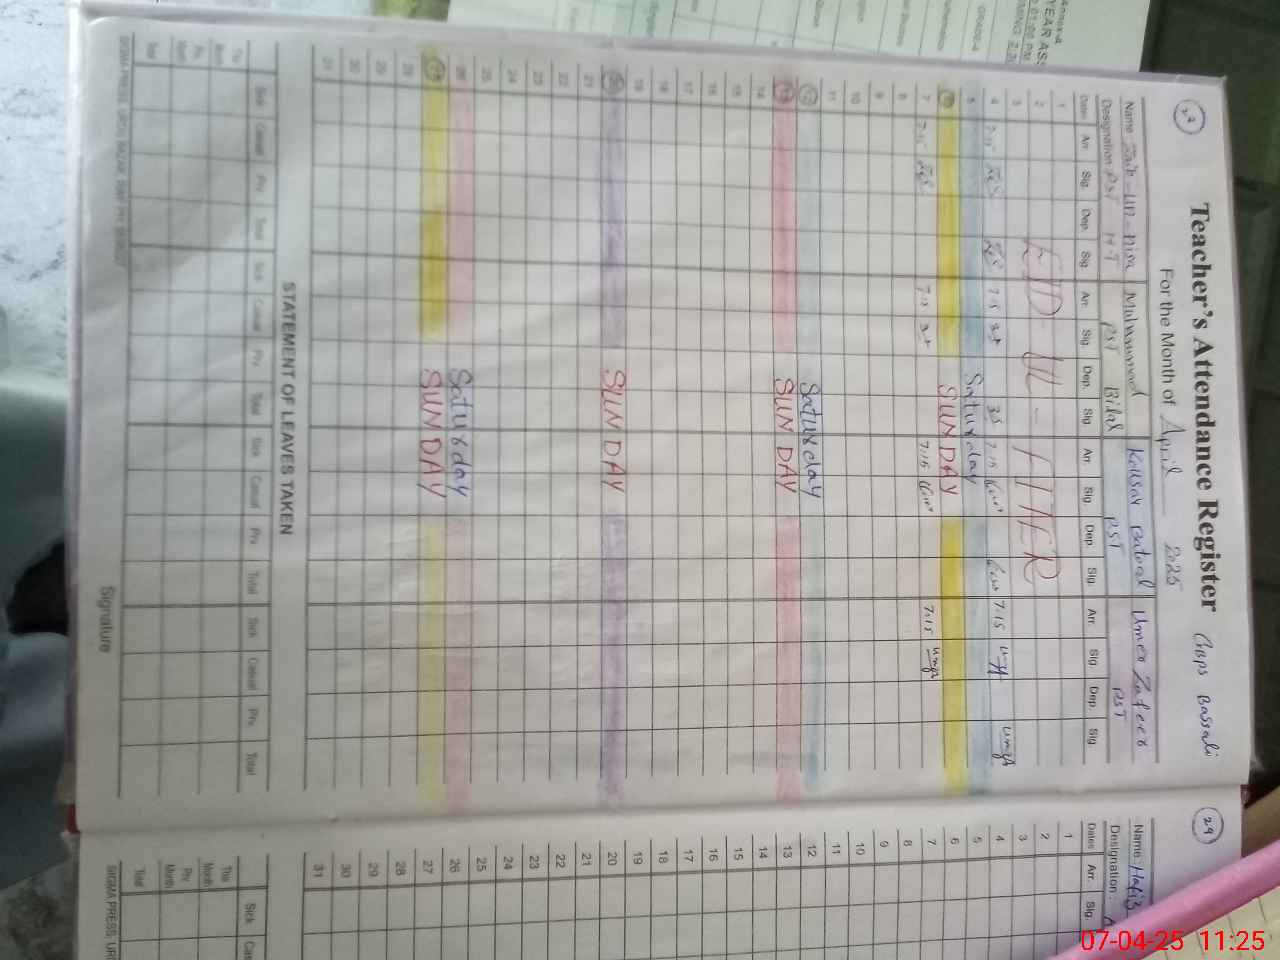 Teacher's Attendance Register
GBPS Bassali
For the Month of April 2025
Name: Zaib-un-nisa
Muhammad Bilal
Kousar Batool
Umer Zafeer
Designation: PST H.T
PST
PST
PST
Dates Arr. Sig. Dep. Sig. Arr. Sig. Dep. Sig. Arr. Sig. Dep. Sig. Arr. Sig. Dep. Sig.
1
2
3
EID-UL-FITER
4 7:15 7:15 7:15 7:15
5 Saturday
6 SUNDAY
7 7:15 7:15 7:15 7:15
8
9
10
11
12 Saturday
13 SUNDAY
14
15
16
17
18
19
20 SUNDAY
21
22
23
24
25
26 Saturday
27 SUNDAY
28
29
30
31
STATEMENT OF LEAVES TAKEN
Sick Casual Prv Total Sick Casual Prv Total Sick Casual Prv Total Sick Casual Prv Total
Total
Signature
29
Name: Hafiz
Designation:
Dates Arr. Sig.
1
2
3
4
5
6
7
8
9
10
11
12
13
14
15
16
17
18
19
20
21
22
23
24
25
26
27
28
29
30
31
Sick
This Month
Prv Month
Total
SIGMA PRESS, UR
07-04-25 11:25